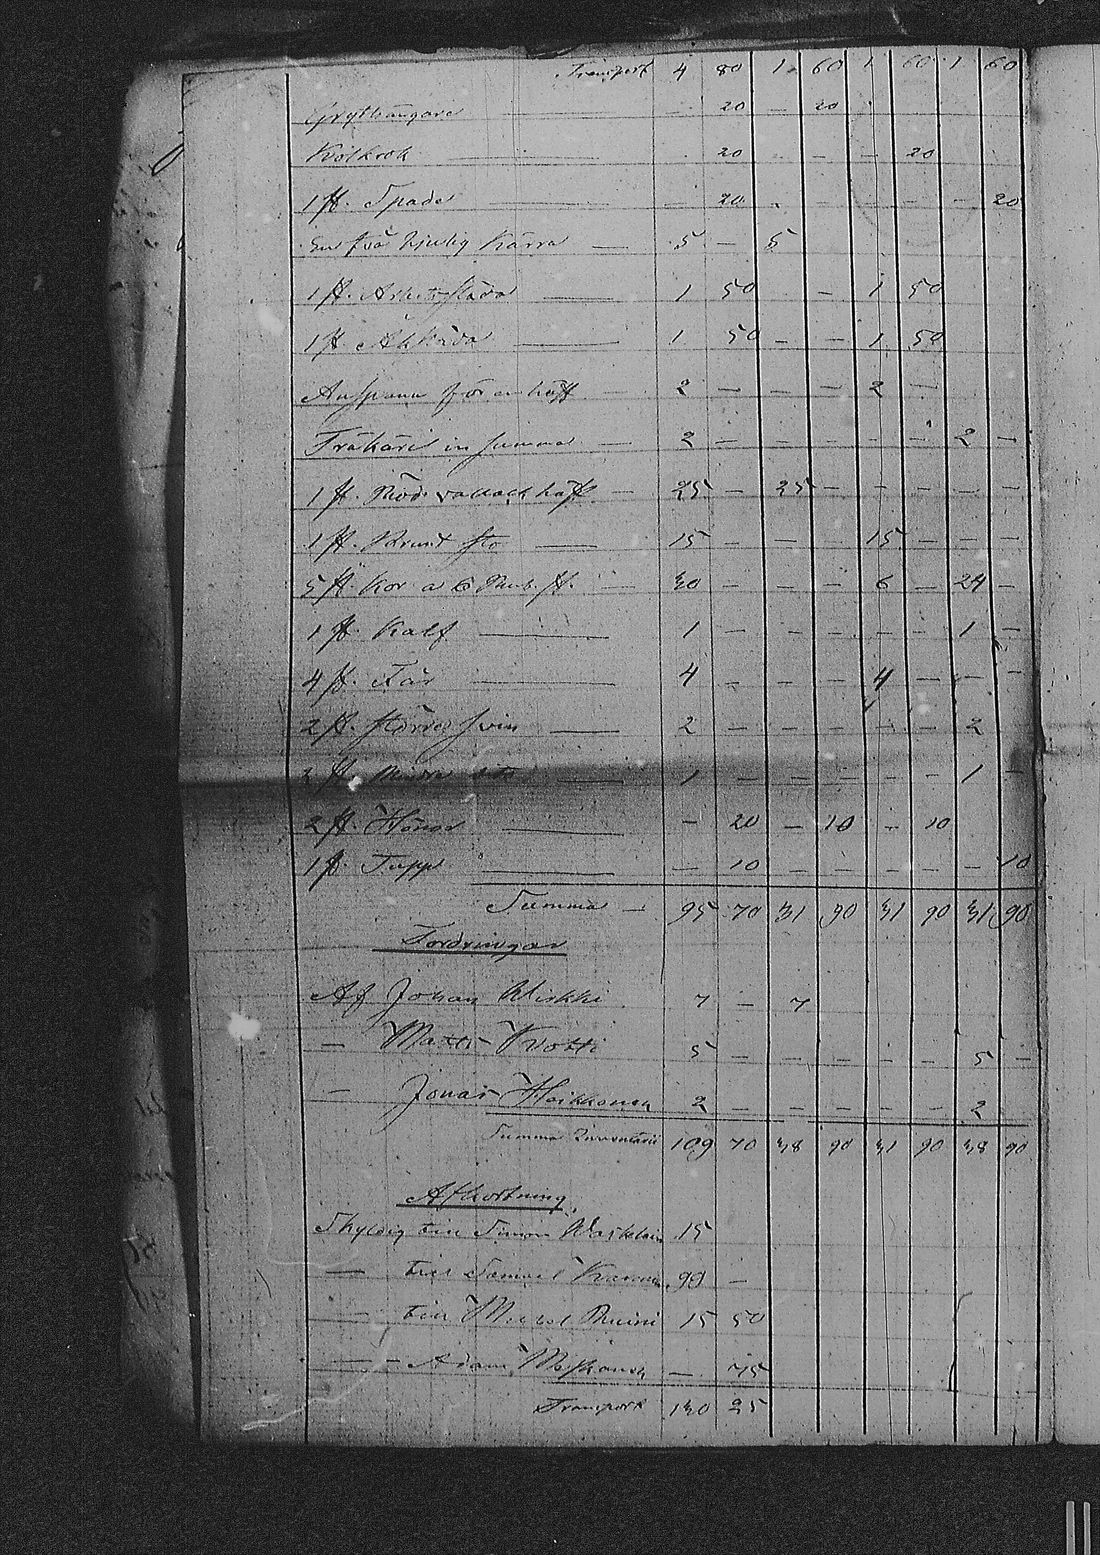 Transport 4 80 1 60 1 60 1 60
Grythängare — 20 — 20
Kolkrok — 20 — — — 20
1 st. Spade — 20 — — — — — 20
En två hjulig Kärra — 5 — 5
1 st. Arbetssläda — 1 50 — 1 50
1 st. Åksläda — 1 50 — — 1 50
Anspann för en häst — 2 — — — 2 —
Träkäril in summa — 2 — — — — — 2 —
1 st. Röd vallack häst — 25 — 25 — — — — —
1 st. Brunt sto — 15 — — — 15 — — —
5 st. Kor a 6 Rub. st. — 30 — — — 6 — 24 —
1 st. Kalf — 1 — — — — — 1 —
4 st. Får — 4 — — — 4 — — —
2 st. större svin — 2 — — — — — 2 —
st. mindre dito — 1 — — — — — 1 —
2 st. Hönor — — 20 — 10 — 10
1 st. Tupp — — 10 — — — — — 10
Summa — 95 70 31 90 31 90 31 90
Fordringar
Af Johan 7 — 7
— Matts 5 — — — — — 5 —
— Jonas Heikkonen 2 — — — — — 2
Summa Inventarii 109 70 38 90 31 90 38 90
Afkortning
Skyldig till Simon 15
— till Samuel 99 —
— till 15 50
— Adam — 75
Transport 130 25